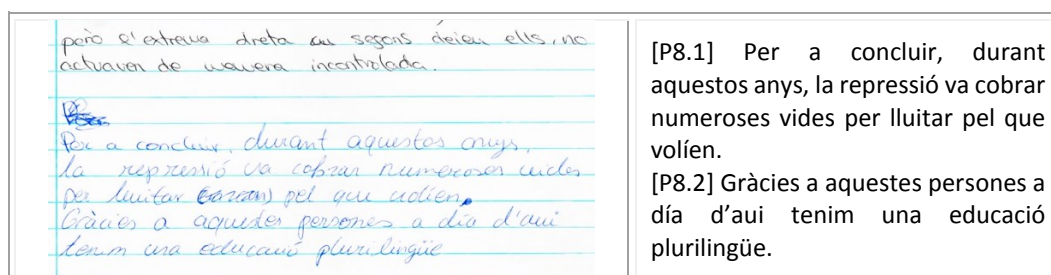 però l'extrema dreta segons deien ells, no
actuaven de manera incontrolada.
Per a concluir, durant aquestos anys,
la repressió va cobrar numeroses vides
per luitar pel que volíen.
Gràcies a aquestes persones a día d'aui
tenim una educació plurilingüe
[P8.1] Per a concluir, durant
aquestos anys, la repressió va cobrar
numeroses vides per lluitar pel que
volíen.
[P8.2] Gràcies a aquestes persones a
día d’aui tenim una educació
plurilingüe.